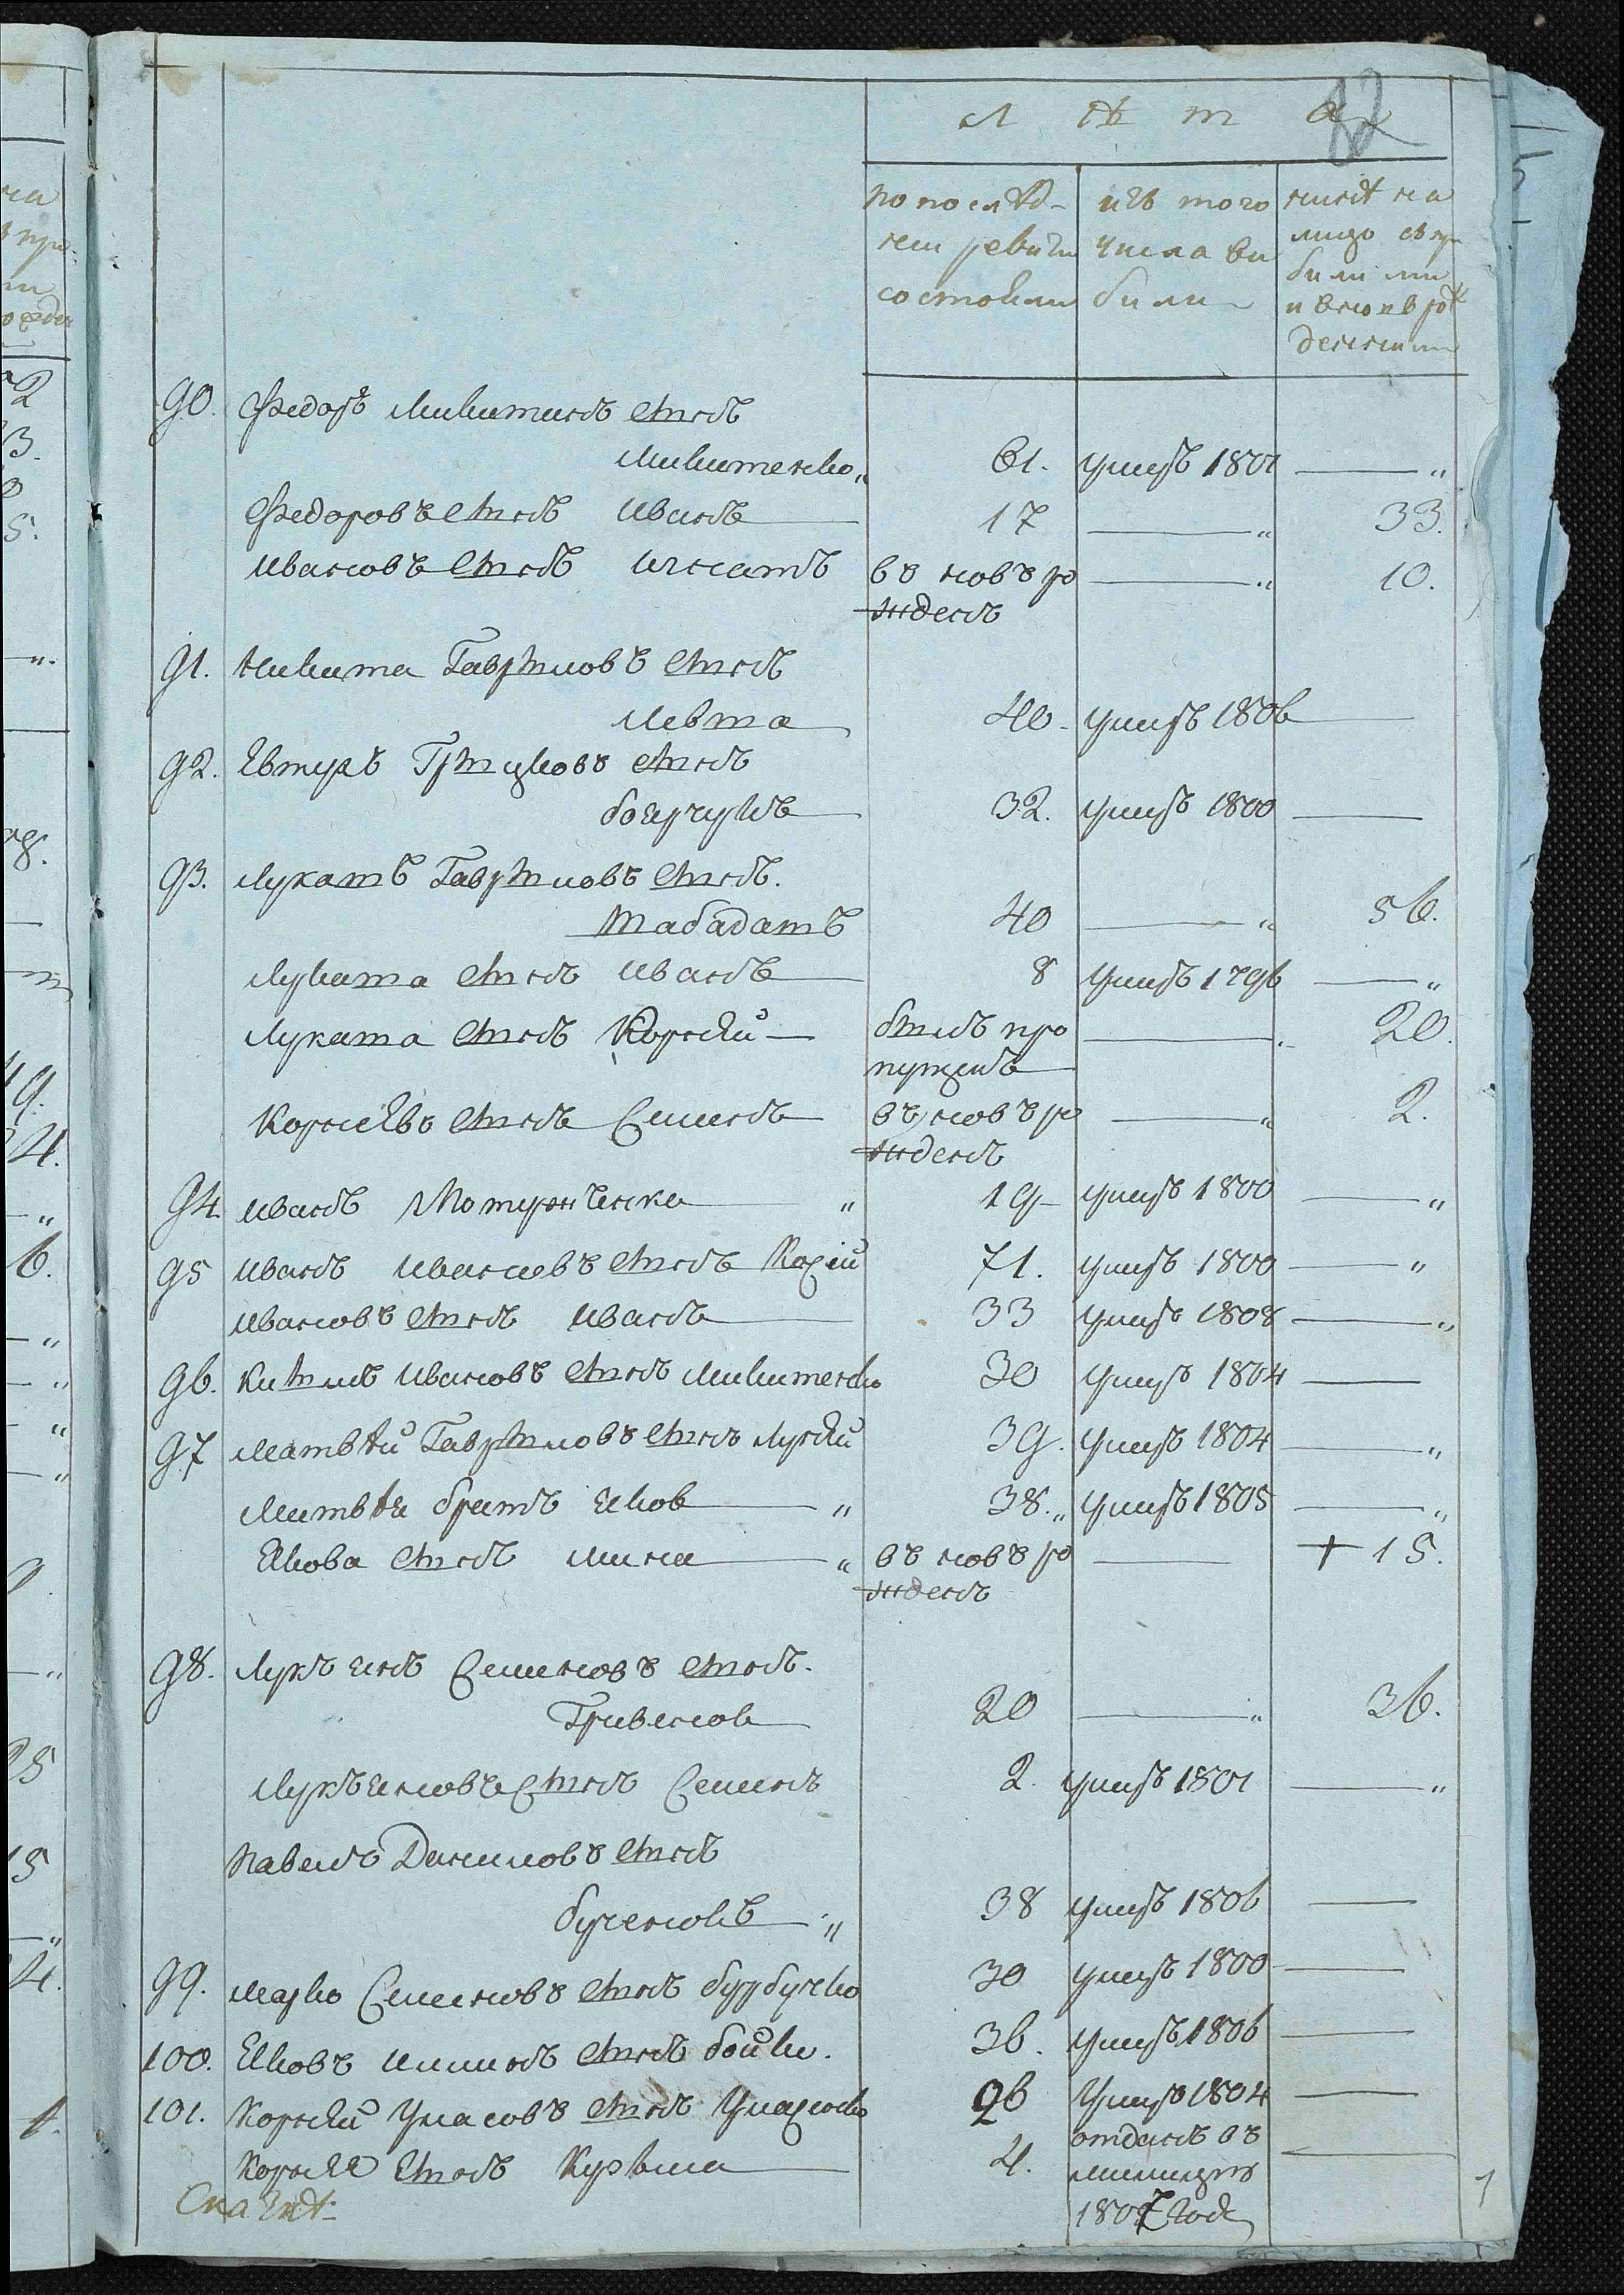 Л Ѣ т а
82
по послѣд-
ней ревизи
состояли
изъ того
числа вы
были
нинѣ на
лицо съ при
были ми
и вновь рож
денними
90. Федоръ Микитинъ сынъ
Микитенко 61. умеръ 1801 — „
Федоровъ сынъ Иванъ — 17 — „ 33.
Ивановъ сынъ Игнатъ въ новъ ро — „ 10.
жденъ
91. Никита Гаврыловъ сынъ
Левта 40 - умеръ 1806 —
92. Евтухъ Грыцковъ сынъ
32. умеръ 1800 —
93. Лукашъ Гаврыловъ сынъ.
Шабадашъ 40 — „ 56.
Лукаша сынъ Иванъ — 8 умеръ 1796 — „
Лукаша сынъ Корнѣй — былъ про — „ 20.
пущенъ
Корнѣевъ сынъ Семенъ — въ новъ ро — „ 2.
жденъ
94. Иванъ „ 19 - умеръ 1800 — „
95 Иванъ Ивановъ сынъ 71. умеръ 1800 — „
Ивановъ сынъ Иванъ — 33 умеръ 1808 — „
96. Иванов сынъ Микитенко 30 умеръ 1804 —
97 Матвѣй Гаврыловъ сынъ 39. умеръ 1804 — „
Матвѣя братъ Яков — „ 38. „ умеръ 1805 — „
Якова сынъ Мина — „ въ новъ ро — + 15.
жденъ
98. Лукъянъ Семеновъ сынъ.
20 — „ 36.
Лукъяновъ сынъ Семенъ 2. умеръ 1801 — „
Павелъ Даниловъ сынъ
„ 38 умеръ 1806 —
99. Марко Семеновъ сынъ 30 умеръ 1800 —
100. Яковъ сынъ Бойко. 36. умеръ 1806 —
101. Корнѣй Уласовъ сынъ 26 умеръ 1804 —
Корнѣя сынъ Кузьма — 4. отданъ въ —
милицию
1807 году
1